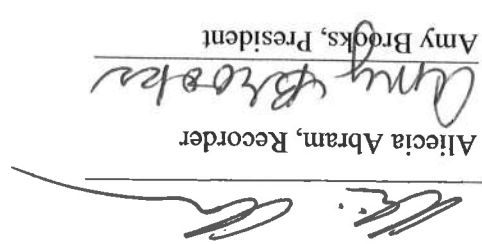 Aliecia Abram, Recorder
Amy Brooks
Amy Brooks, President